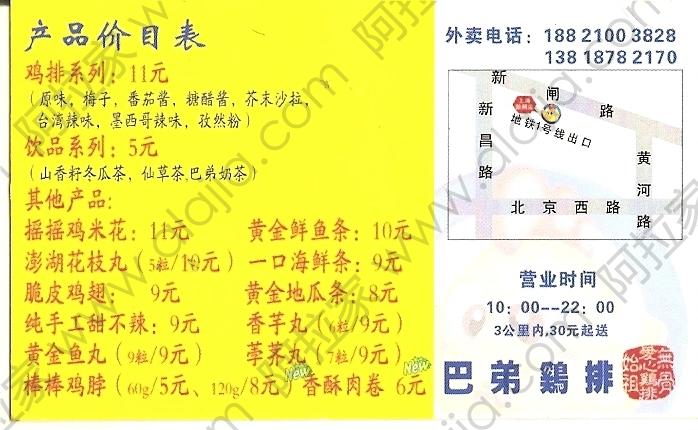 产品价目表
鸡排系列：11元
（原味，梅子，番茄酱，糖醋酱，芥末沙拉，
台湾辣味，墨西哥辣味，孜然粉）
饮品系列：5元
（山香籽冬瓜茶，仙草茶,巴弟奶茶）
其他产品：
摇摇鸡米花：11元 黄金鲜鱼条：10元
澎湖花枝丸（5粒/10元） 一口海鲜条：9元
脆皮鸡翅： 9元 黄金地瓜条：8元
纯手工甜不辣：9元 香芋丸（6粒/9元）
黄金鱼丸（9粒/9元） 荸荠丸（7粒/9元）
棒棒鸡脖（60g/5元、120g/8元）New 香酥肉卷 6元 New
外卖电话：188 2100 3828
138 1878 2170
新 闸 路
新昌路
地铁1号线出口
黄河路
北京西路
营业时间
10：00—22：00
3公里内,30元起送
巴弟鷄排
無骨
愛心鷄排
始祖
阿拉家 www.alajia.com